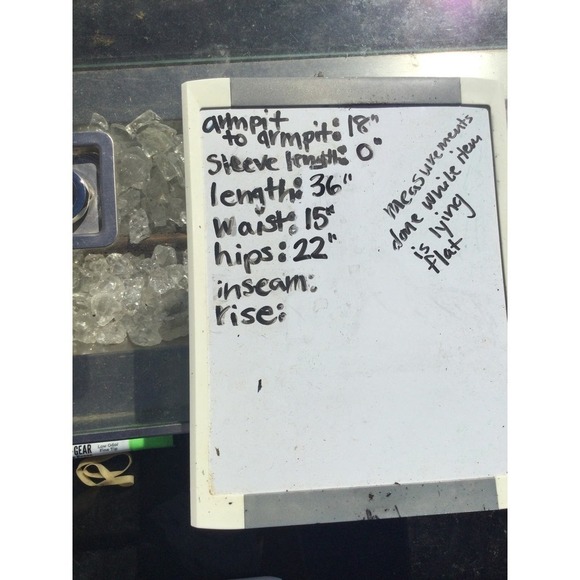 armpit
to armpit: 18"
Sleeve length: 0"
length: 36"
waist: 15"
hips: 22"
inseam:
rise:
measurements
done while item
is lying
flat
GEAR
Low Odor
Fine Tip